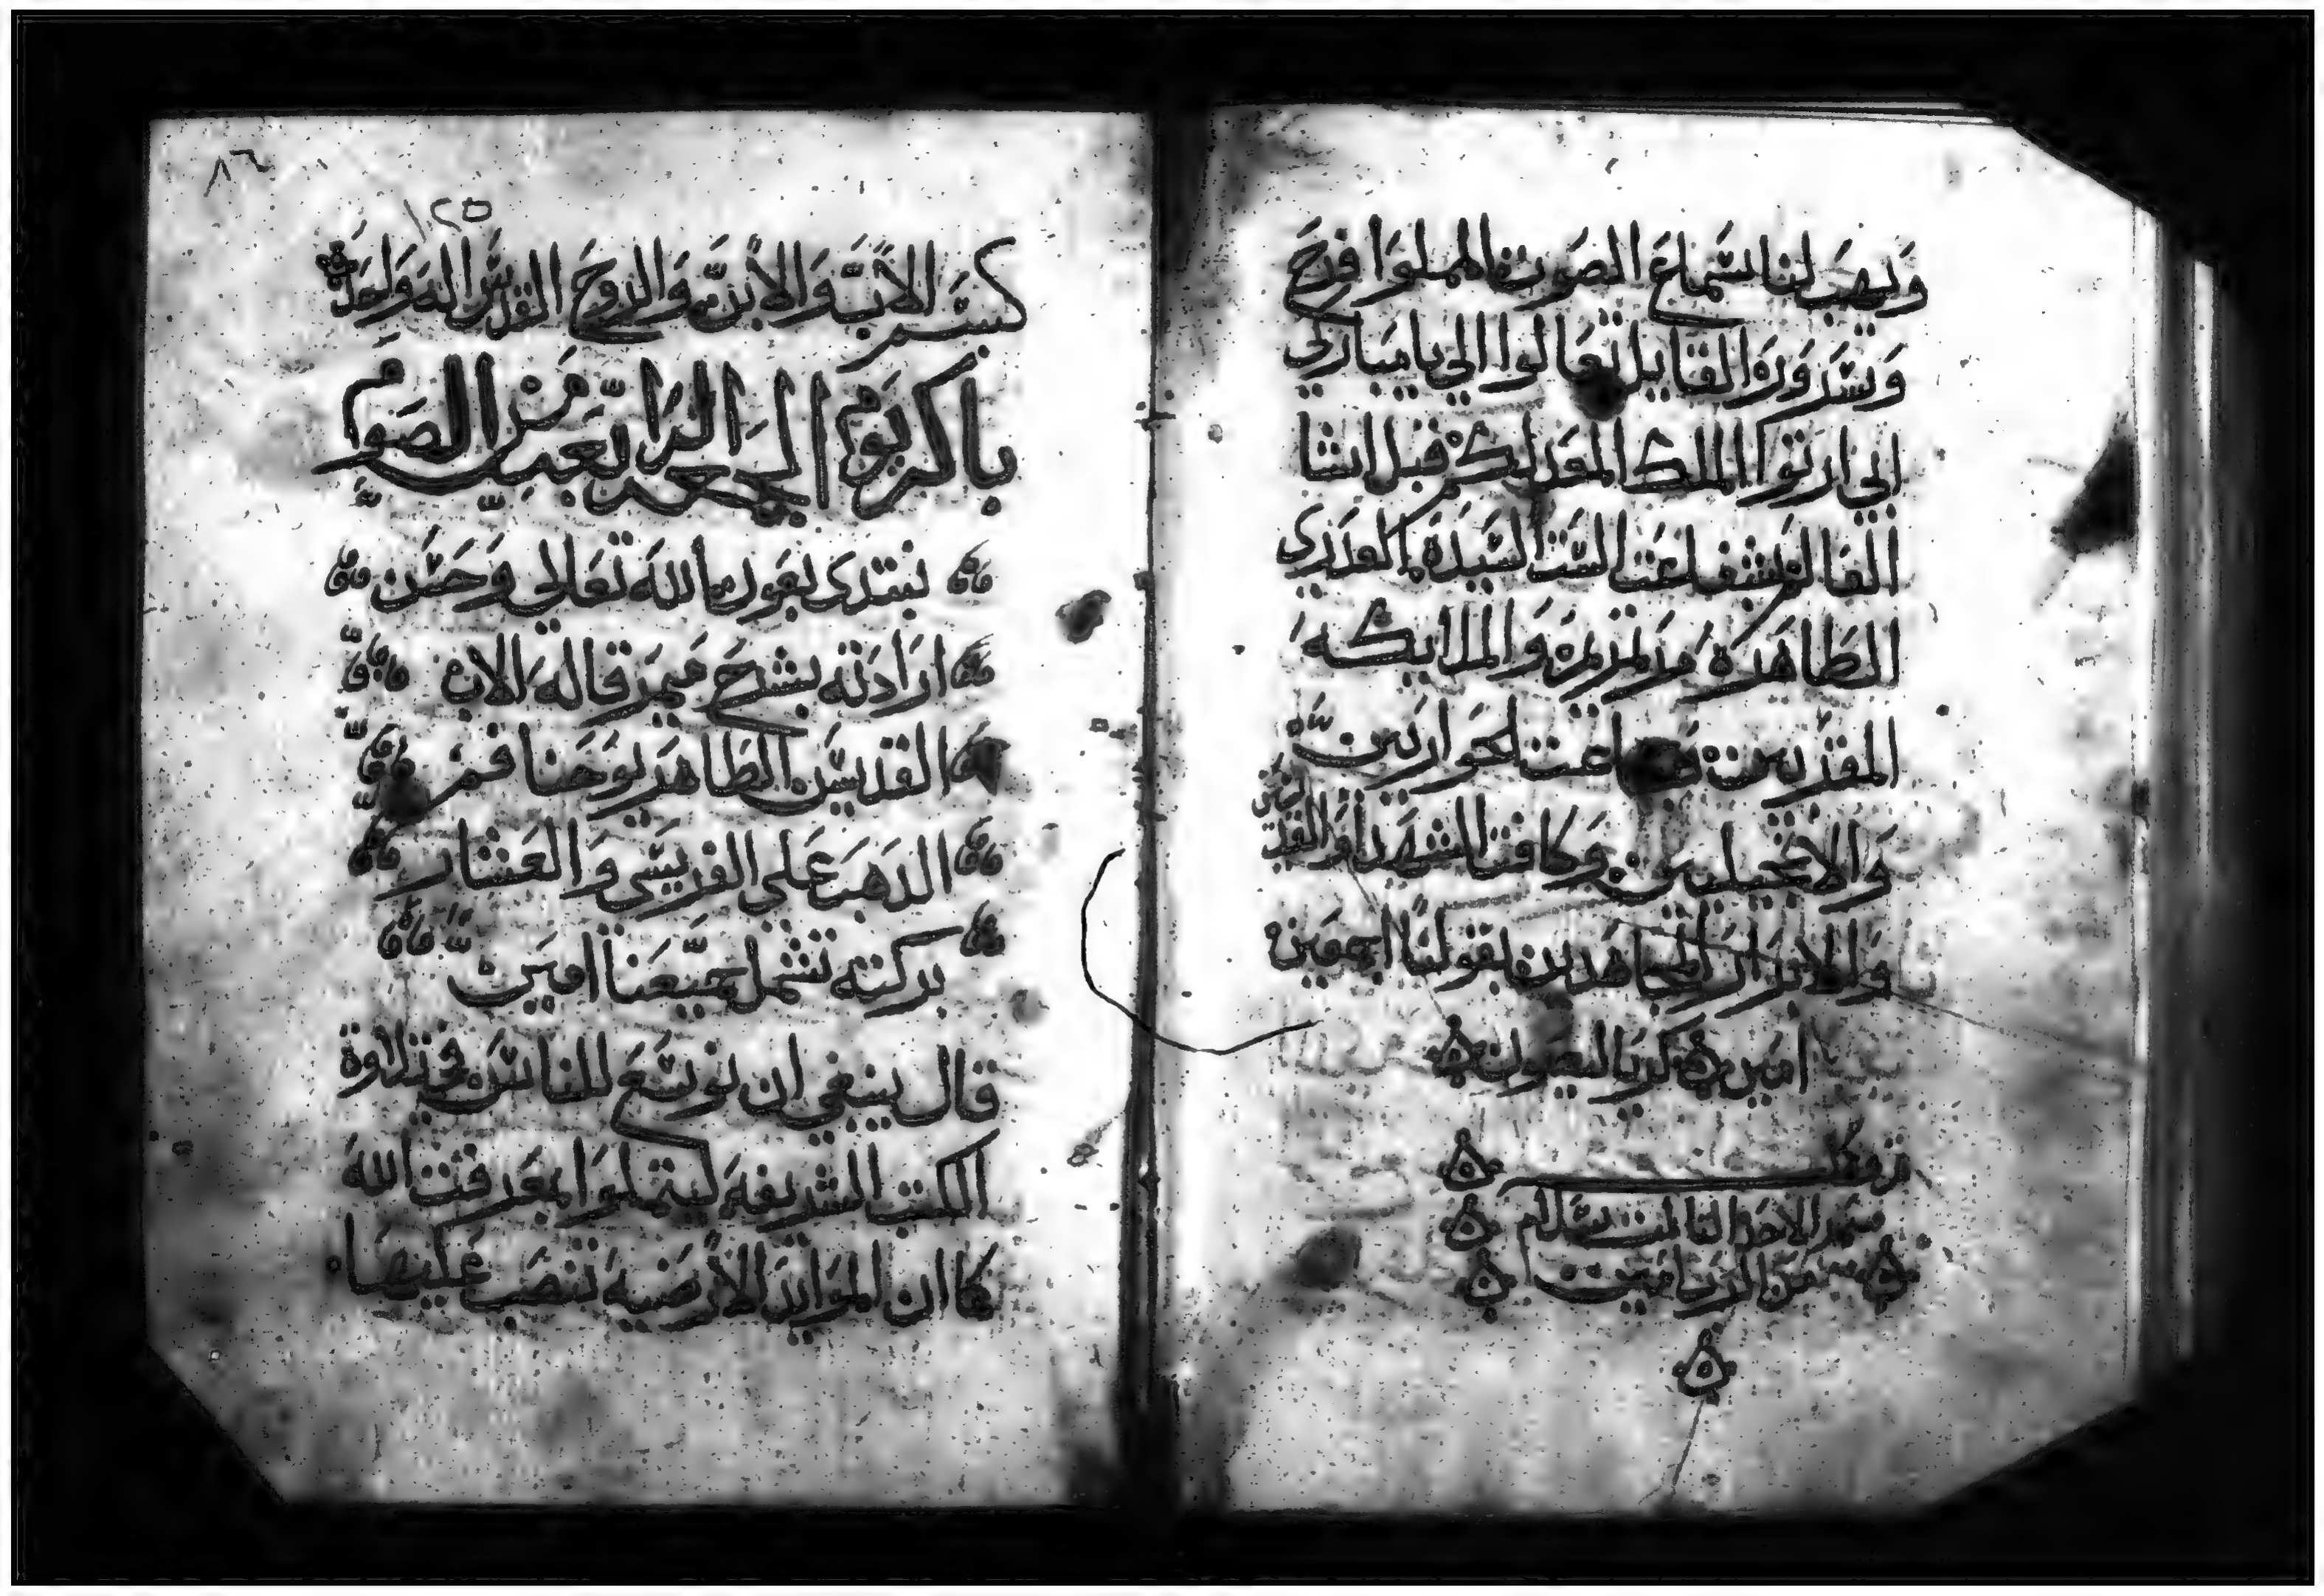 ويهب لنا سماع الصوت المملوا فرح
وسرور القايل تعالوا الي يا مباركي
ابي ارثوا الملك المعد لكم قبل انشا
العالم بشفاعت الست السيدة العدري
الطاهرة مرتمريم والملايكه
المقربين وجماعت الحواريين
والانجيليين وكافت الشهدا والقديسين
والابرار المجاهدين بقولنا اجمعين
امين كرياليصون
تم وكمل
ميمر الاحد الثالث بسلام
من الرب امين
٨٦
١٢٥
بسم الاب والابن والروح القدس اله واحد
باكر يوم الجمعه الرابعه من الصوم
نبتدى بعون الله تعالي وحسن
ارادته بشرح ميمر قاله الاب
القديس الطاهر يوحنا فم
الدهب علي الفريسي والعشار
بركته تشمل جميعنا امين
قال ينبغي ان نوسع للناس في تلاوة
الكتب الشريفه ليتملوا بمعرفت الله
كما ان الموايد الارضيه تنصب عليها